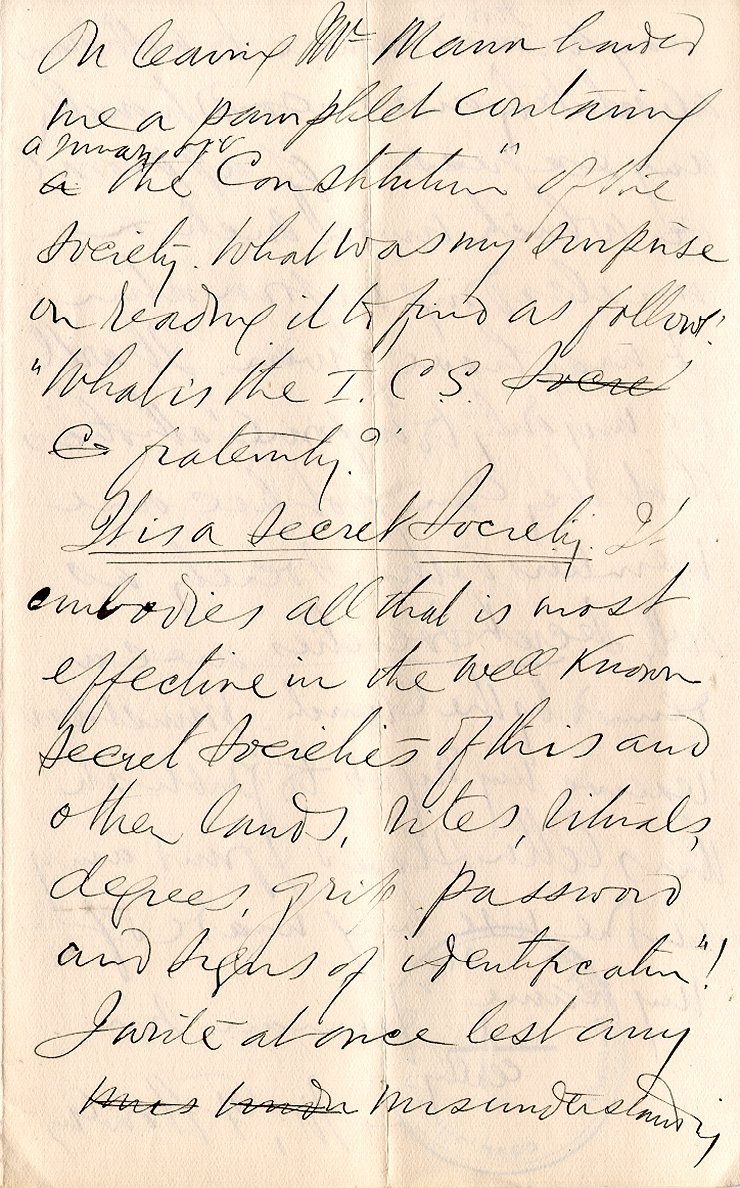 On leaving Mr Mann handed
me a pamphlet containing
a summary of
a the Constitution" of the
Society. What was my surprise
on reading it to find as follows:
"What is the I. C S. Secret
C fraternity?"
It is a secret Society. It
embodies all that is most
effective in the well known
secret societies of this and
other lands, rites, rituals,
degrees, grip, password
and signs of identification"!
I write at once lest any
misunderstanding